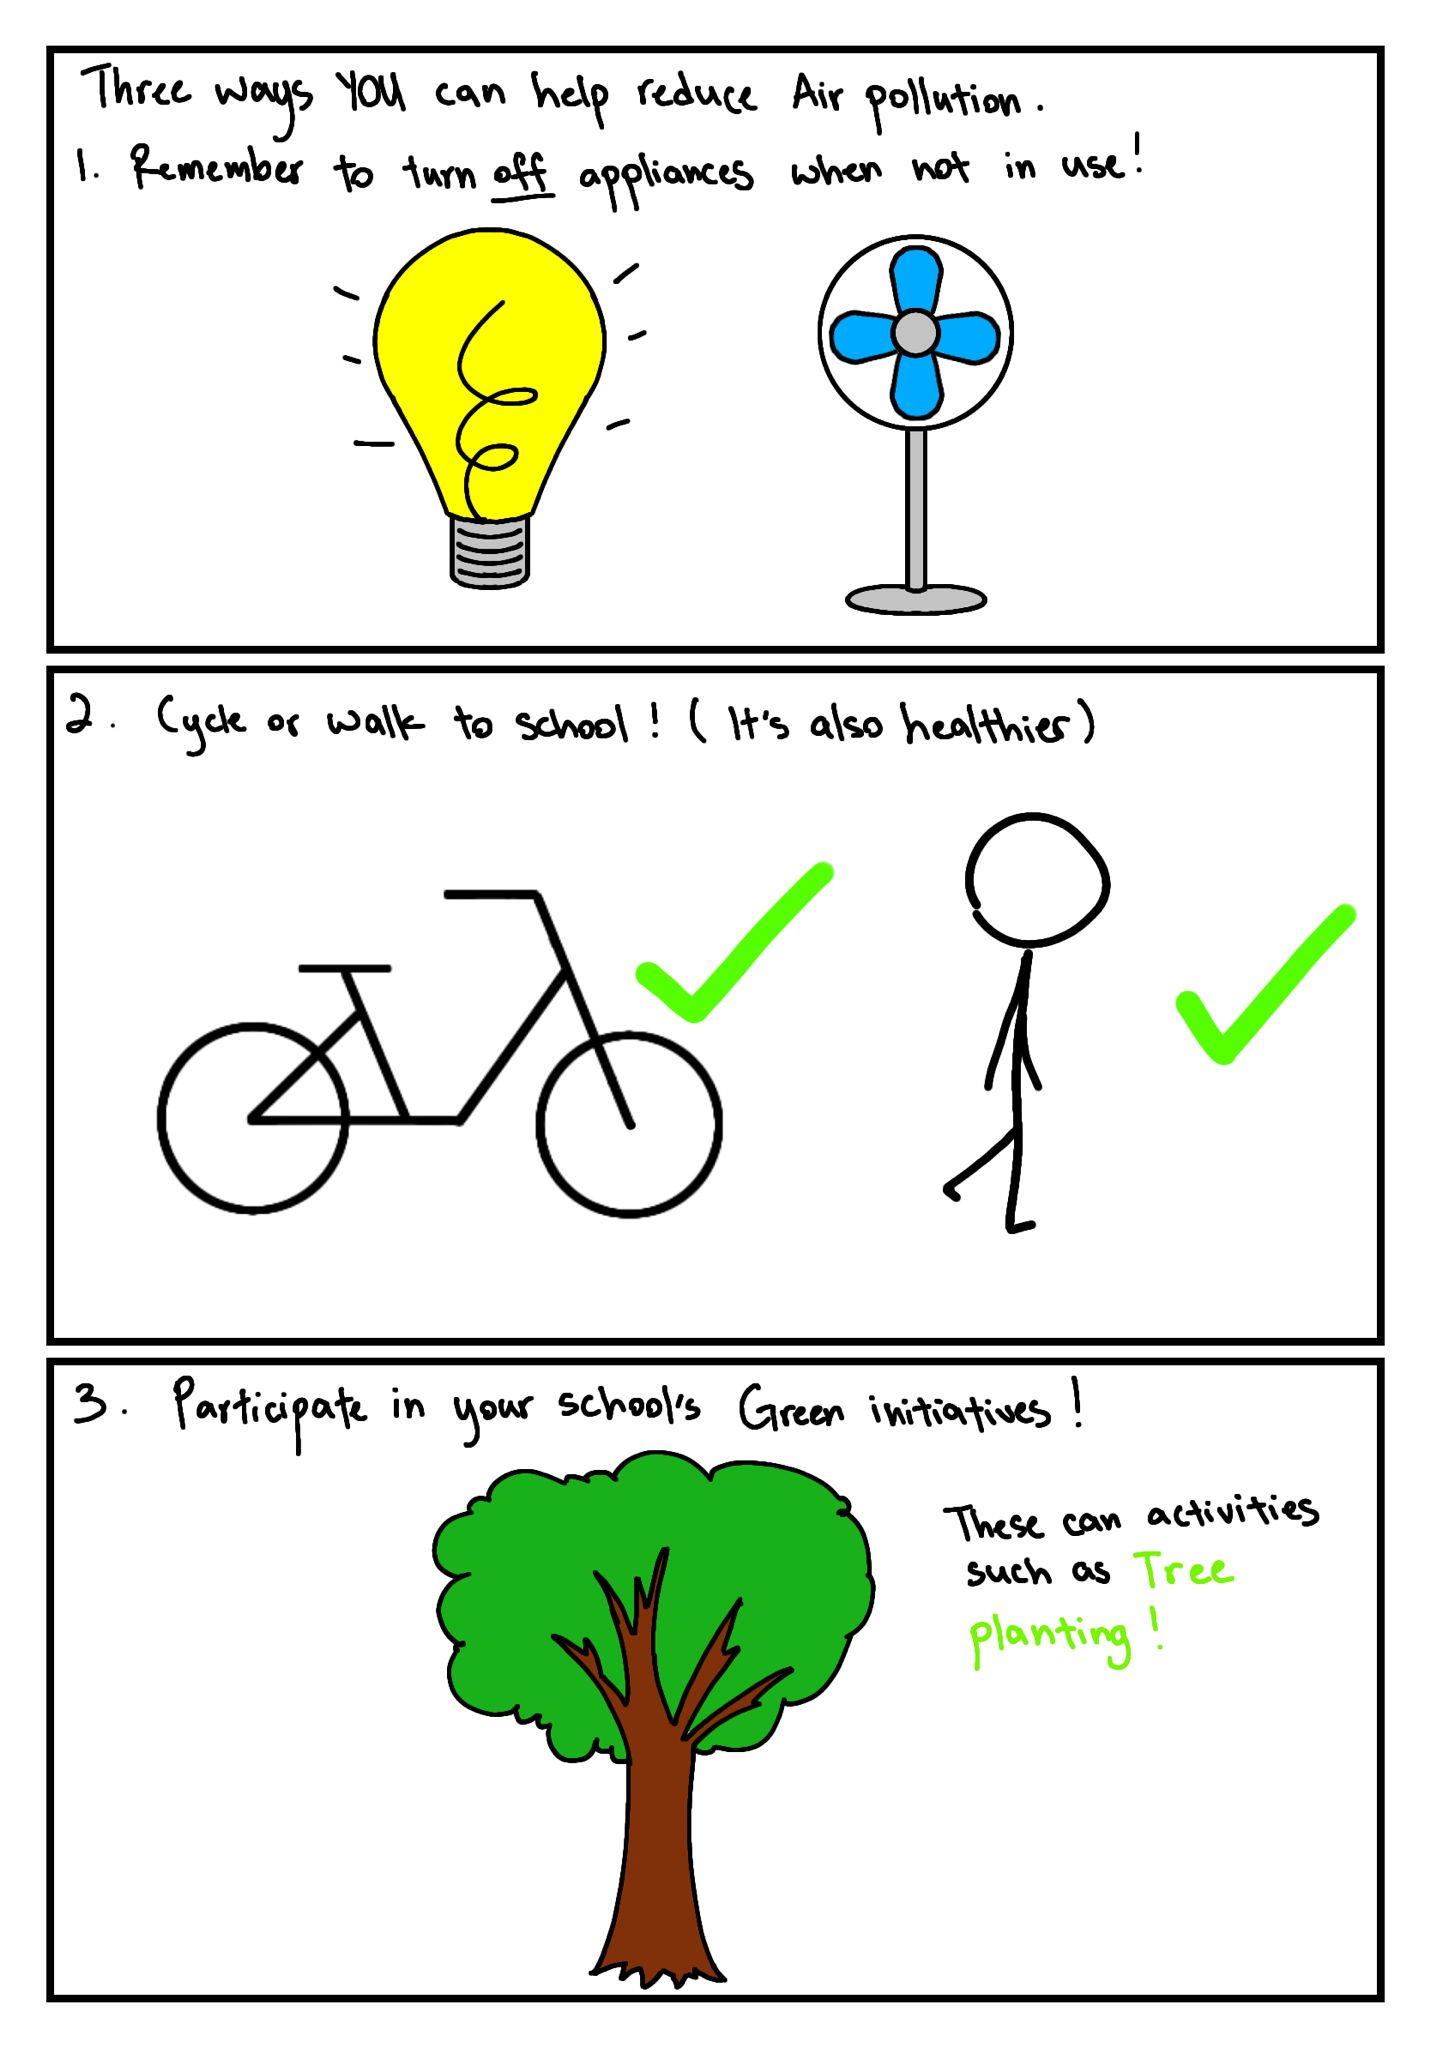 Three ways YOU can help reduce Air pollution.
1. Remember to turn off appliances when not in use!
2. Cycle or walk to school! (It's also healthier)
3. Participate in your school's Green initiatives!
These can activities
such as Tree
planting!